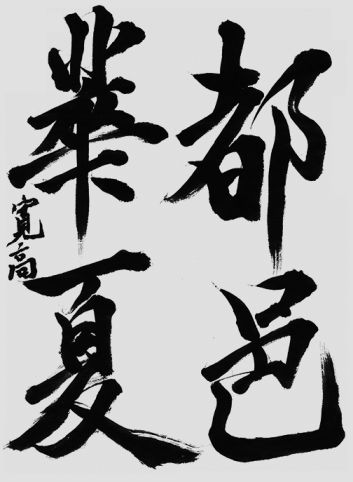 都邑
華夏
寛高